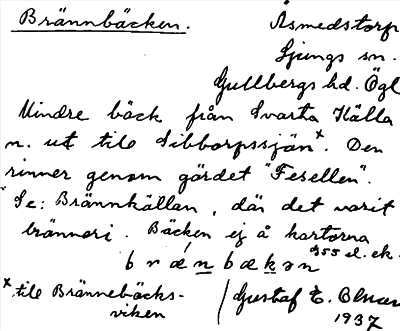 Brännbäcken.
Åsmedstorp
Ljungs sn.
Gullbergs hd. Ögl
Mindre bäck från Svarta Källa
n. ut till Sibborpssjön x. Den
rinner genom gärdet "Fesellen".
Se: Brännkällan, där det varit
bränneri. Bäcken ej å kartorna
355 el. ek.
brænbækən
x till Brännebäcks-
viken
Gustaf E.
1937